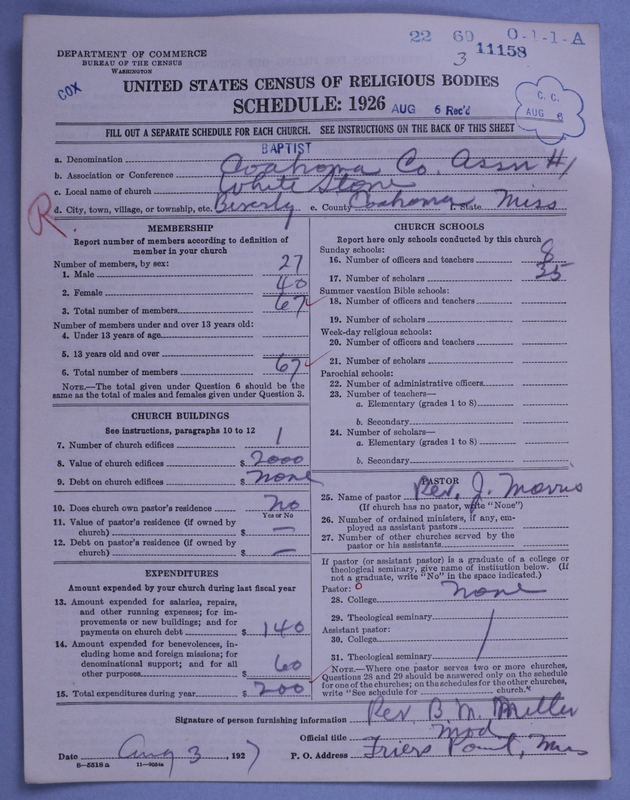 22 60 0-1-1-A
3 11158
DEPARTMENT OF COMMERCE
BUREAU OF THE CENSUS
WASHINGTON
COX
UNITED STATES CENSUS OF RELIGIOUS BODIES
SCHEDULE: 1926 AUG 6 Rec'd
C. C.
AUG 6
FILL OUT A SEPARATE SCHEDULE FOR EACH CHURCH. SEE INSTRUCTIONS ON THE BACK OF THIS SHEET
BAPTIST
a. Denomination
b. Association or Conference Coahoma Co. Assn #1
c. Local name of church White Stone
R
d. City, town, village, or township, etc. Beverly e. County Coahoma f. State Miss
MEMBERSHIP
Report number of members according to definition of
member in your church
Number of members, by sex:
1. Male 27
2. Female 40
3. Total number of members 67
Number of members under and over 13 years old:
4. Under 13 years of age
5. 13 years old and over
6. Total number of members 67
NOTE.—The total given under Question 6 should be the
same as the total of males and females given under Question 3.
CHURCH BUILDINGS
See instructions, paragraphs 10 to 12
7. Number of church edifices 1
8. Value of church edifices $ 2000
9. Debt on church edifices $ none
10. Does church own pastor's residence no
Yes or No
11. Value of pastor's residence (if owned by
church) $ —
12. Debt on pastor's residence (if owned by
church) $ —
EXPENDITURES
Amount expended by your church during last fiscal year
13. Amount expended for salaries, repairs,
and other running expenses; for im-
provements or new buildings; and for
payments on church debt $ 140
14. Amount expended for benevolences, in-
cluding home and foreign missions; for
denominational support; and for all
other purposes $ 60
15. Total expenditures during year $ 200
CHURCH SCHOOLS
Report here only schools conducted by this church
Sunday schools:
16. Number of officers and teachers 8
17. Number of scholars 35
Summer vacation Bible schools:
18. Number of officers and teachers
19. Number of scholars
Week-day religious schools:
20. Number of officers and teachers
21. Number of scholars
Parochial schools:
22. Number of administrative officers
23. Number of teachers—
a. Elementary (grades 1 to 8)
b. Secondary
24. Number of scholars—
a. Elementary (grades 1 to 8)
b. Secondary
PASTOR
25. Name of pastor Rev. J. Morris
(If church has no pastor, write "None")
26. Number of ordained ministers, if any, em-
ployed as assistant pastors
27. Number of other churches served by the
pastor or his assistants
If pastor (or assistant pastor) is a graduate of a college or
theological seminary, give name of institution below. (If
not a graduate, write "No" in the space indicated.)
Pastor: 0
28. College none
29. Theological seminary
Assistant pastor:
30. College
31. Theological seminary
NOTE.—Where one pastor serves two or more churches,
Questions 28 and 29 should be answered only on the schedule
for one of the churches; on the schedules for the other churches,
write "See schedule for church."
Signature of person furnishing information Rev. B. M. Miller
Official title Mod
Date Aug 3, 1927 P. O. Address Friers Point, Miss
8—5518a 11—9054a